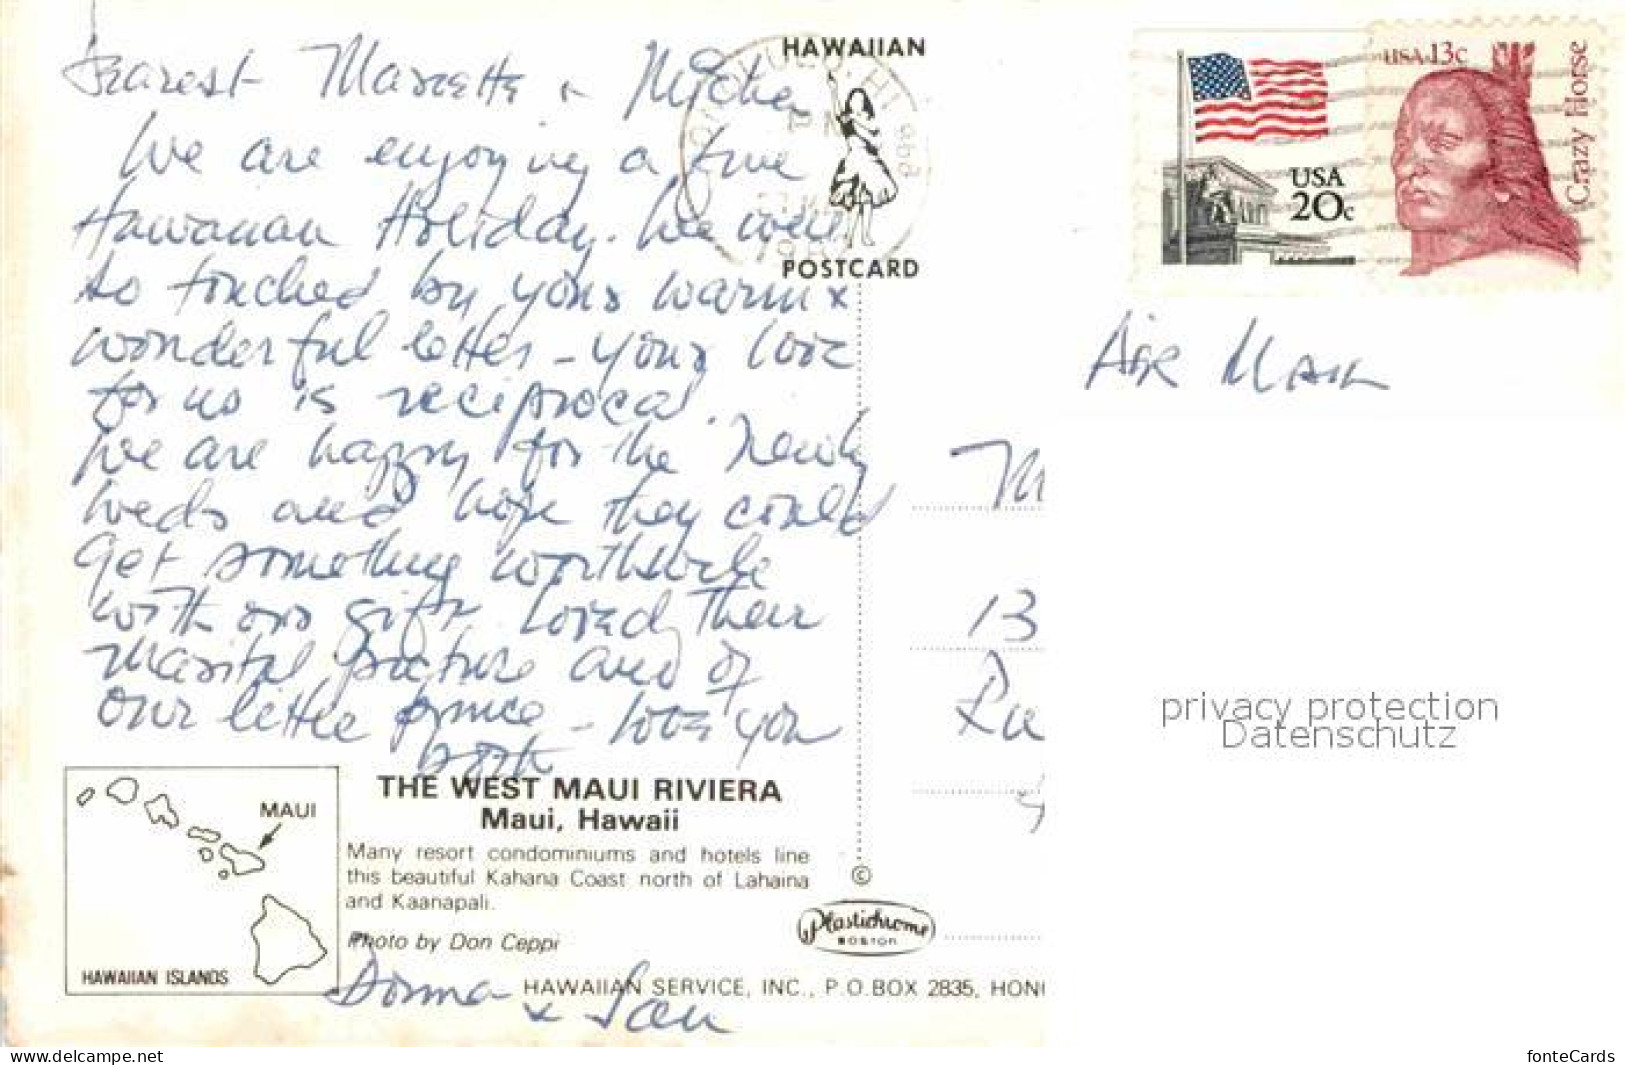 Dearest Marcette & Michel
We are enjoying a true
Hawaiian Holiday. We were
so touched by your warm &
wonderful letter - your love
for us is reciprocal.
We are happy for the newly
weds and hope they could
get something worthwhile
with our gift. Loved their
marital picture and of
our little prince - love you
both
Donna
& Ian
HAWAIIAN
POSTCARD
HONOLULU, HI 968
PM
USA
20c
USA 13c
Crazy Horse
AIR MAIL
M
13
Ru
privacy protection
Datenschutz
MAUI
HAWAIIAN ISLANDS
THE WEST MAUI RIVIERA
Maui, Hawaii
Many resort condominiums and hotels line
this beautiful Kahana Coast north of Lahaina
and Kaanapali.
Photo by Don Ceppi
©
Plastichrome
BOSTON
HAWAIIAN SERVICE, INC., P.O. BOX 2835, HON
www.delcampe.net
fonteCards